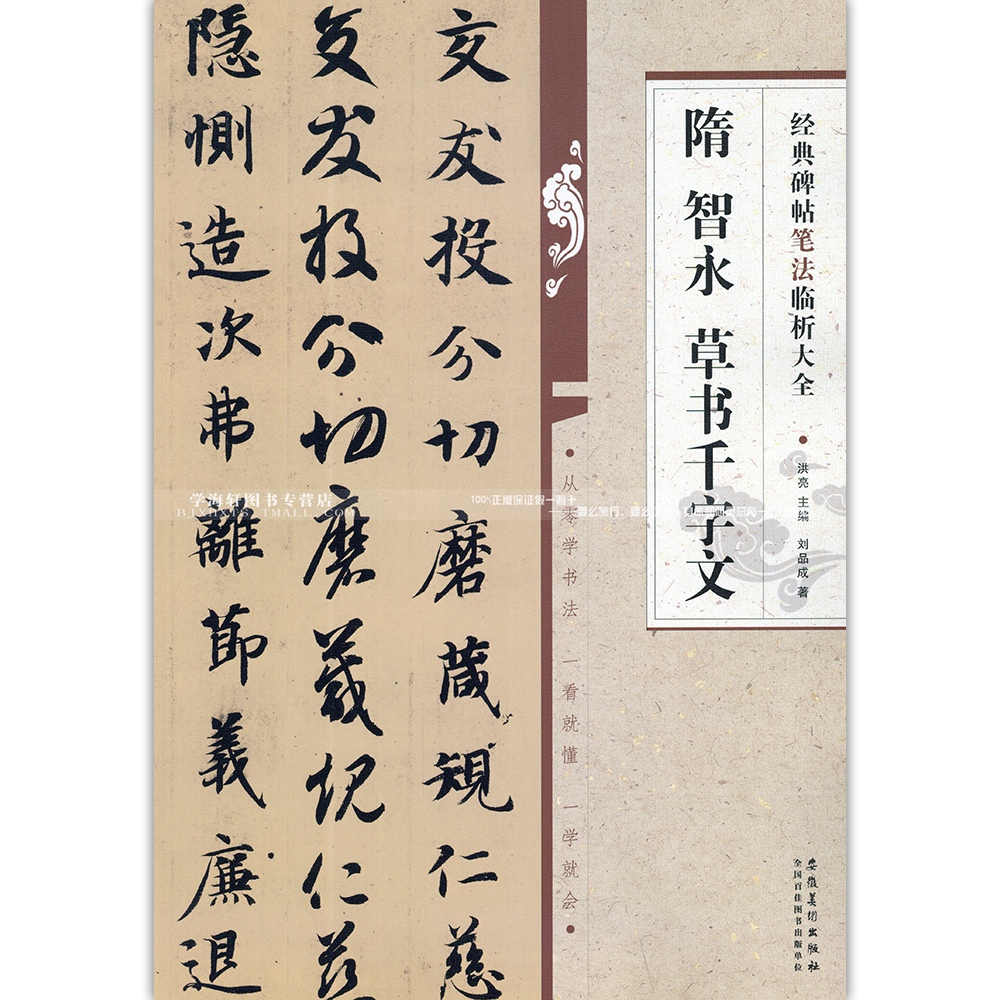 经典碑帖笔法临析大全
洪亮 主编 刘品成 著
隋 智永 草书千字文
安徽美术出版社
全国百佳图书出版单位
·从零学书法 一看就懂 一学就会·
交友投分切磨箴规仁慈
交友投分切磨箴規仁慈
隐恻造次弗離節義廉退
学海轩图书专营店
BJXHXTS.TMALL.COM
100%正版保证假一赔十